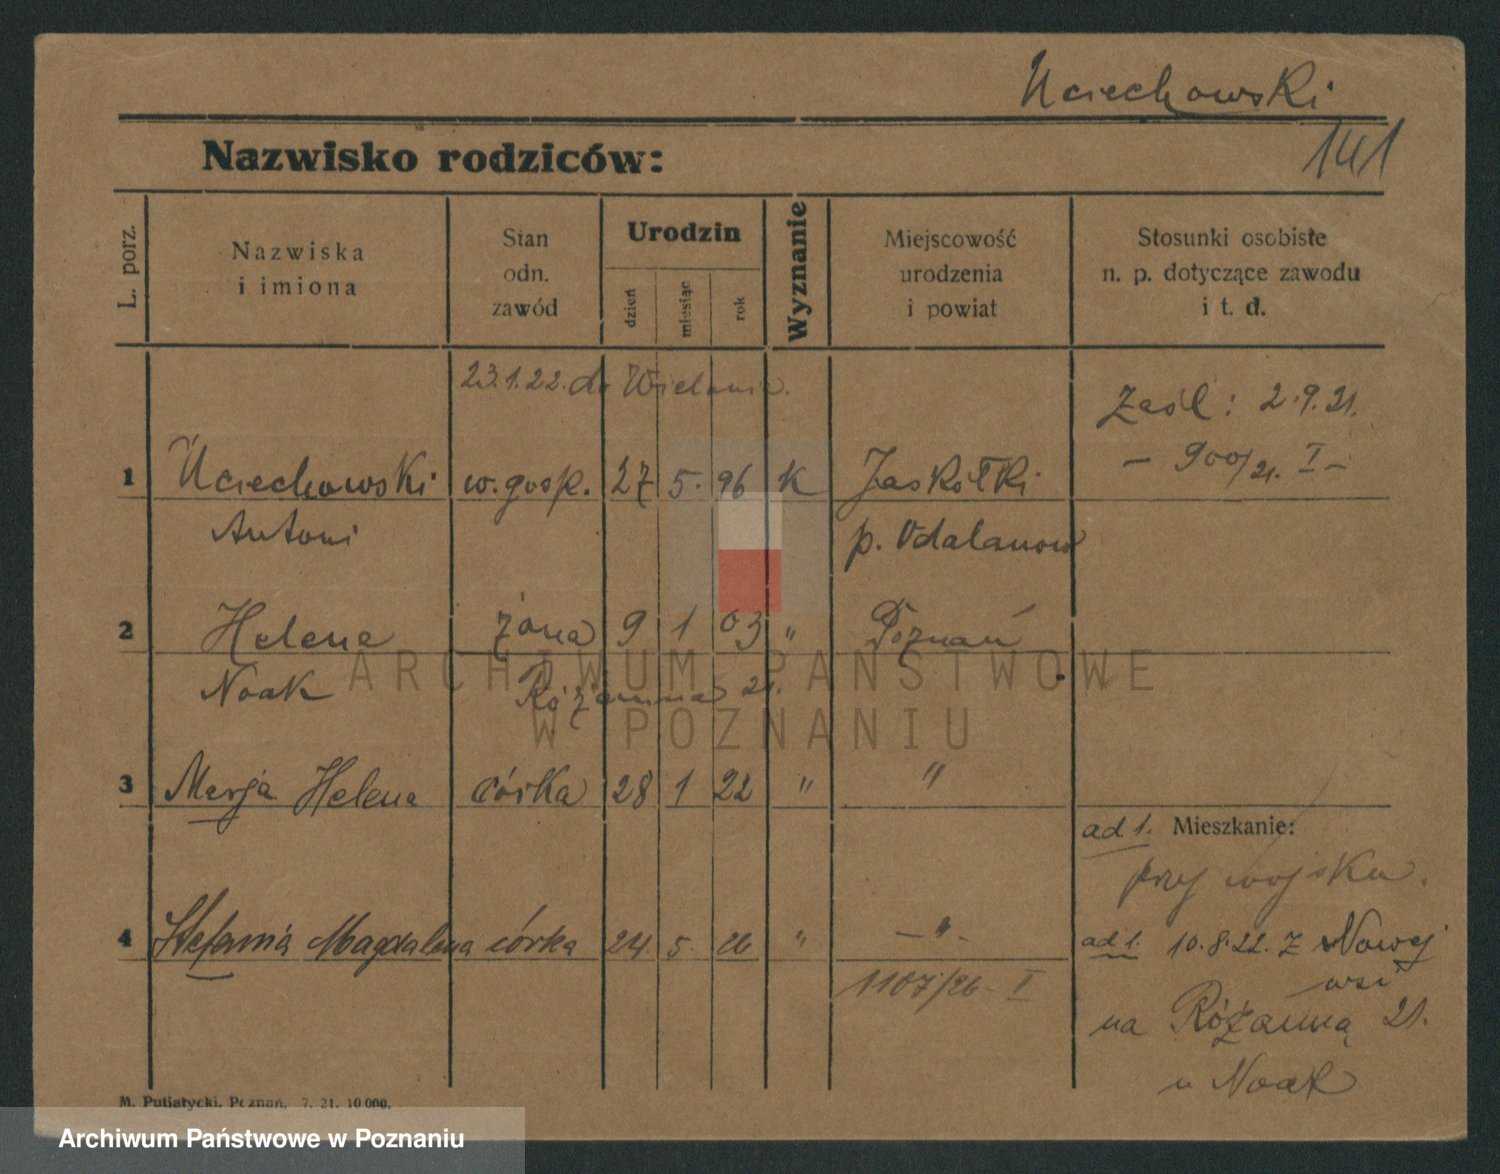 Uciechowski
141
Nazwisko rodziców:
L. porz.
Nazwiska
i imiona
Stan
odn.
zawód
Urodzin
dzień
miesiąc
rok
Wyznanie
Miejscowość
urodzenia
i powiat
Stosunki osobiste
n. p. dotyczące zawodu
i t. d.
23.1.22. do
Zaśl: 2.9.21.
1 Uciechowski w. gosp. 27 5. 96 K Jaskółki
– 900/21. I –
Antoni p. Odalanow
2 Helena żona 9 1 03 " Poznań
Noak Różanna 21.
ARCHIWUM PAŃSTWOWE
W POZNANIU
3 Marja Helena córka 28 1 22 " "
ad 1. Mieszkanie:
przy wojsku.
4 Stefania Magdalena córka 24. 5. 26 " – " –
ad 1. 10.8.22. z Nowej
wsi
1107/26 – II
na Różanną 21.
u Noak
M. Putiatycki, Poznań. 7. 21. 10 000.
Archiwum Państwowe w Poznaniu